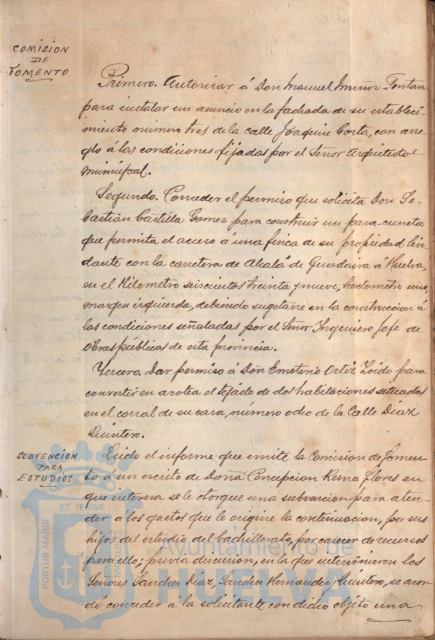 COMISION
DE
FOMENTO
Primero. Autorizar á Don Manuel Muñoz Fontan
para instalar un anuncio en la fachada de su estableci-
miento número tres de la calle Joaquin Costa, con arre-
glo á las condiciones fijadas por el Señor Arquitecto
Municipal.
Segundo. Conceder el permiso que solicita Don Se-
bastián Castilla Gomez para construir un para-cuneta
que permita el acceso á una finca de su propiedad lin-
dante con la carretera de Alcalá de Guadaira á Huelva,
en el Kilometro seiscientos treinta y nueve, hectometro uno,
margen izquierda, debiendo sugetarse en la construccion á
las condiciones señaladas por el Señor Ingeniero Jefe de
Obras públicas de esta provincia.
Tercero. Dar permiso á Don Emeterio Ortiz Zoido para
convertir en azotea el tejado de dos habitaciones situadas
en el corral de su casa, número ocho de la Calle Diaz
Quintero.
SUBVENCION
PARA
ESTUDIOS
Leido el informe que emite la Comision de Fomen-
to á un escrito de Doña Concepcion Reina Flores en
que interesa se le otorgue una subvencion para aten-
der á los gastos que le origine la continuacion, por sus
hijos del estudio del bachillerato, por carecer de recursos
para ello; previa discusion, en la que intervinieron los
Señores Sanchez Diaz, Sanchez Hernandez y Quintero, se acor-
dó conceder á la solicitante con dicho objeto una
ET TERRA
PORTUS MARIS
Ayuntamiento de
HUELVA